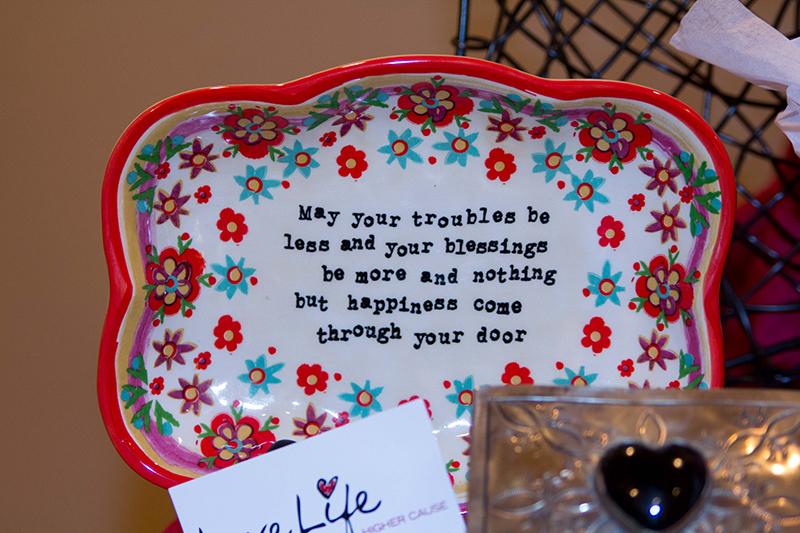 May your troubles be
less and your blessings
be more and nothing
but happiness come
through your door
Life
HIGHER CAUSE